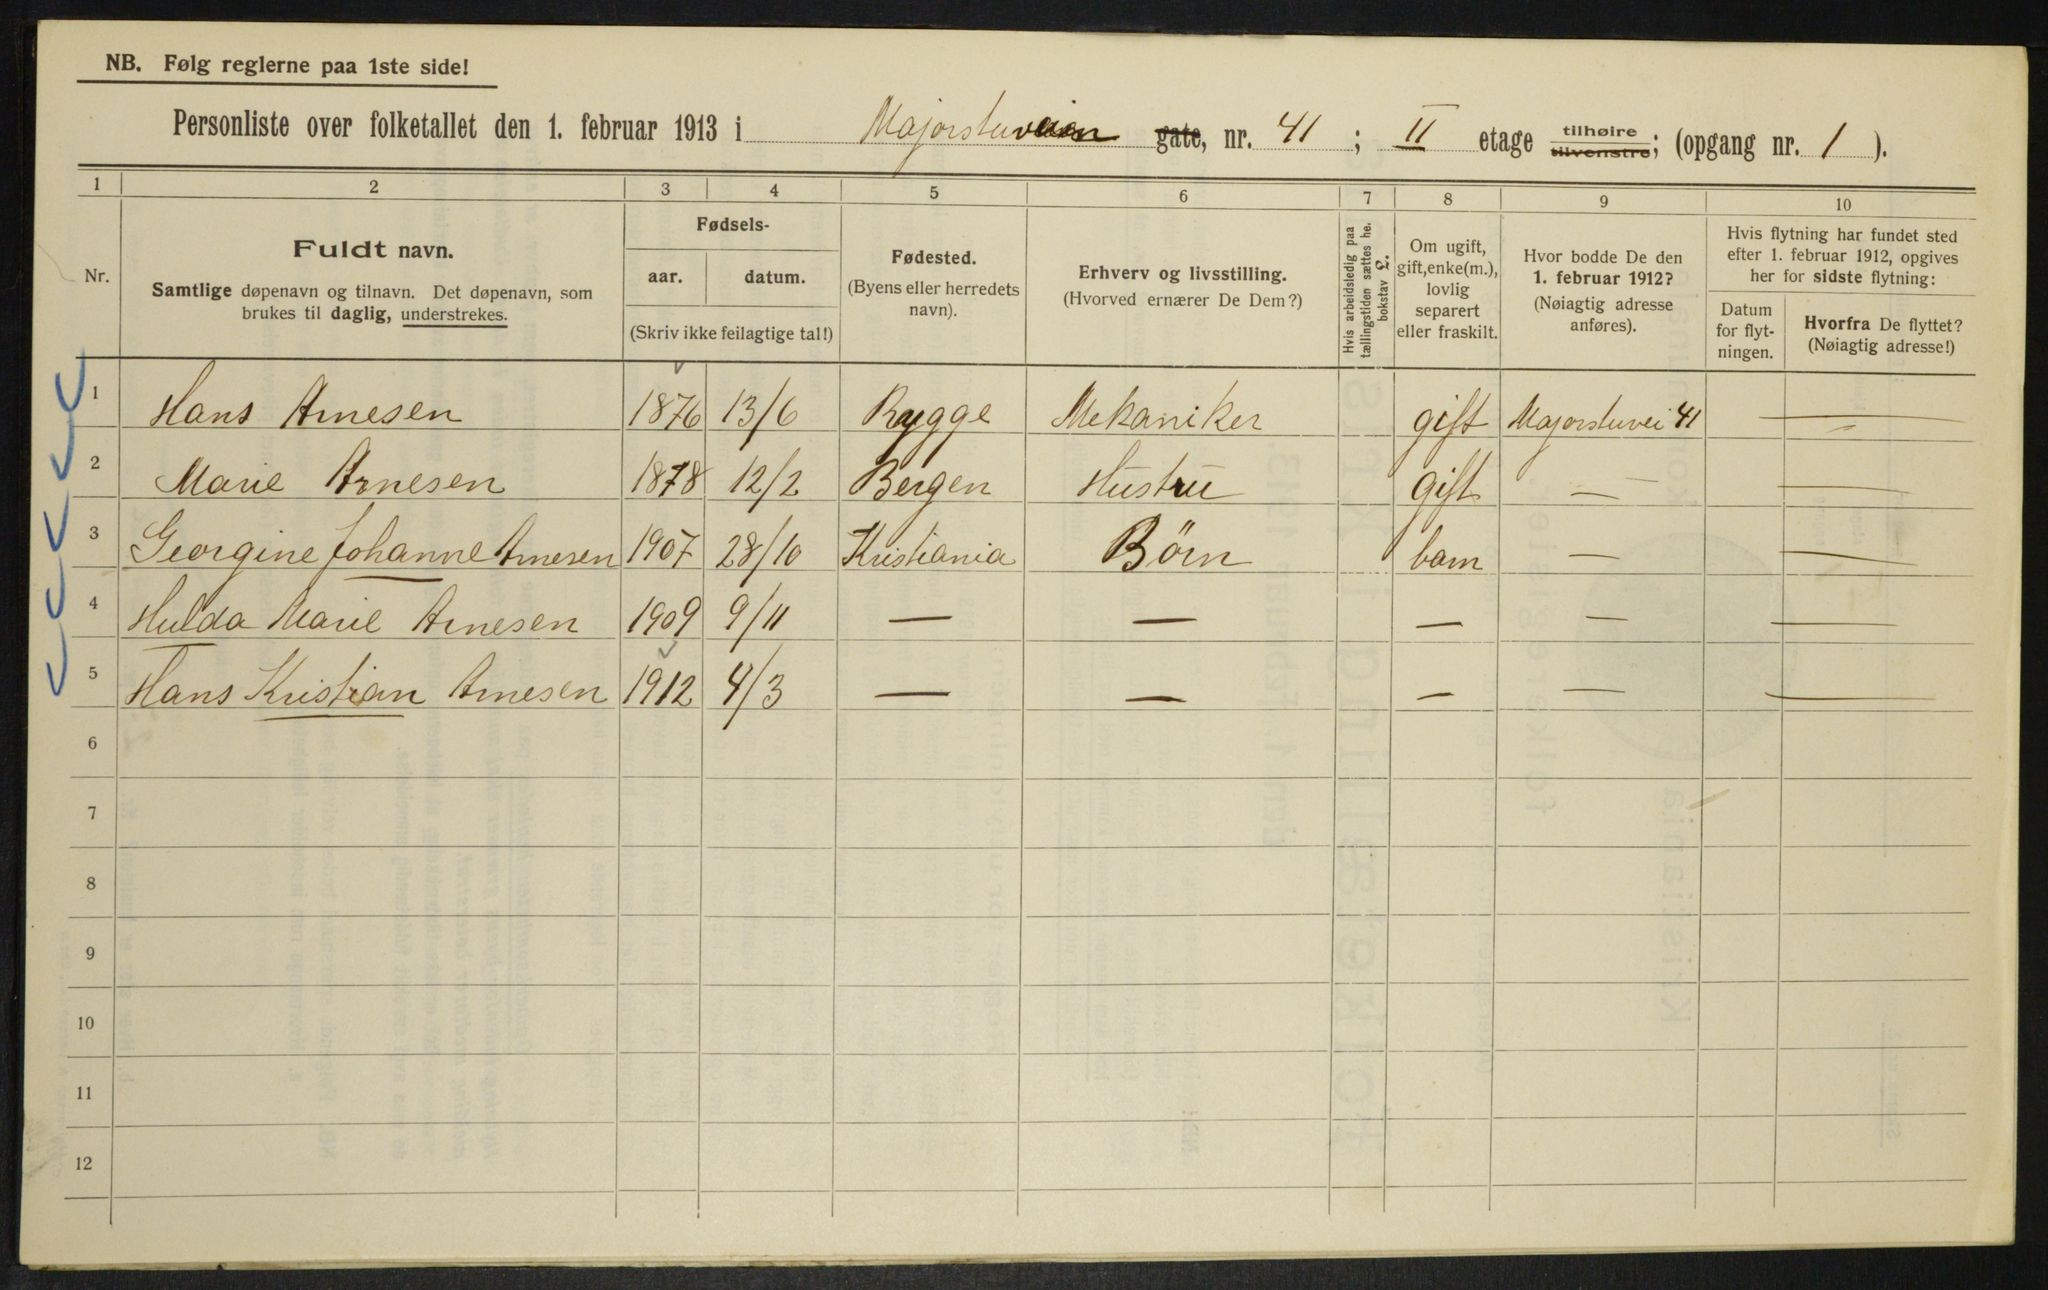 NB. Følg reglerne paa 1ste side!
Personliste over folketallet den 1. februar 1913 i Majorstuveien gate, nr. 41 ; II etage tilhøire tilvenstre; (opgang nr. 1 ).
1 2 3 4 5 6 7 8 9 10
Nr.
Fuldt navn.
Samtlige døpenavn og tilnavn. Det døpenavn, som
brukes til daglig, understrekes.
Fødsels-
aar. datum.
(Skriv ikke feilagtige tal!)
Fødested.
(Byens eller herredets
navn).
Erhverv og livsstilling.
(Hvorved ernærer De Dem?)
Hvis arbeidsledig paa
tællingstiden sættes he.
bokstav £.
Om ugift,
gift, enke(m.),
lovlig
separert
eller fraskilt.
Hvor bodde De den
1. februar 1912?
(Nøiagtig adresse
anføres).
Hvis flytning har fundet sted
efter 1. februar 1912, opgives
her for sidste flytning:
Datum
for flyt-
ningen.
Hvorfra De flyttet?
(Nøiagtig adresse!)
1 Hans Arnesen 1876 13/6 Rygge Mekaniker gift Majorstuvei 41 —
2 Marie Arnesen 1878 12/2 Bergen Hustru gift — —
3 Georgine Johanne Arnesen 1907 28/10 Kristiania Börn barn — —
4 Hulda Marie Arnesen 1909 9/11 — — — — —
5 Hans Kristian Arnesen 1912 4/3 — — — — —
6
7
8
9
10
11
12